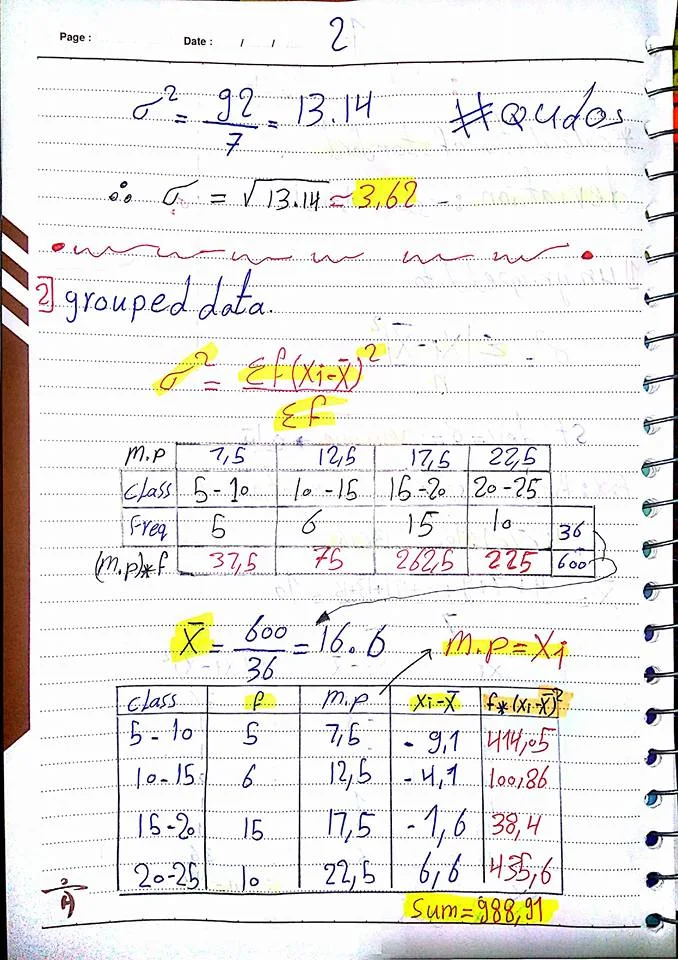 Page :
Date : / /
2
σ² = 92/7 = 13.14 #Qudos
∴ σ = √13.14 ≈ 3,62
2] grouped data.
σ² = Σf(xi-x̄)²/Σf
m.p 7,5 12,5 17,5 22,5
class 5-10 10-15 15-20 20-25
freq 5 6 15 10 36
(m.p)*f 37,5 75 262,5 225 600
x̄ = 600/36 = 16.6 m.p = xi
class f m.p xi-x̄ f*(xi-x̄)²
5-10 5 7,5 -9,1 414,05
10-15 6 12,5 -4,1 100,86
15-20 15 17,5 -1,6 38,4
20-25 10 22,5 6,6 435,6
sum = 988,91